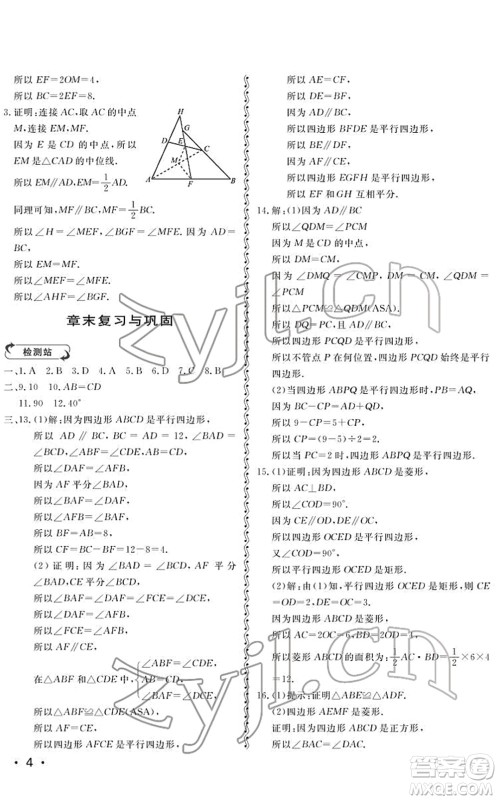 所以 EF=2OM=4,
所以 BC=2EF=8.
3.证明:连接 AC,取 AC 的中点
M,连接 EM,MF.
因为 E 是 CD 的中点,所以
EM 是△CAD 的中位线.
所以 EM∥AD,EM=1/2AD.
同理可知,MF∥BC,MF=1/2BC.
所以∠H=∠MEF,∠BGF=∠MFE.
因为 AD=BC,
所以 EM=MF.
所以∠MEF=∠MFE.
所以∠H=∠BGF.
H
G
D
E
C
M
A
F
B
章末复习与巩固
检测站
一、1.A 2.B 3.D 4.A 5.D 6.D 7.C 8.B
二、9.10 10.AB=CD
11.90 12.40°
三、13.(1)解:因为四边形 ABCD 是平行四边形,
所以 AD∥BC,BC=AD=12,AB∥CD,
∠BAD=∠BCD,∠ABF=∠CDE.
所以∠DAF=∠AFB.
因为 AF 平分∠BAD,
所以∠BAF=∠DAF.
所以∠BAF=∠AFB.
所以 BF=AB=8.
所以 CF=BC-BF=12-8=4.
(2)证明:因为∠BAD=∠BCD,AF 平分
∠BAD,CE平分∠BCD,
所以∠BAF=∠DAF=∠DCE.
因为∠DAF=∠AFB,
所以∠BCE=∠AFB.
所以 AF∥CE.
∠ABF=∠CDE,
AB=CD,
∠BAF=∠DCE,
在△ABF 和△CDE 中,
所以△ABF≌△CDE(ASA).
所以 AF=CE.
所以四边形 AFCE 是平行四边形.
所以 AE=CF.
所以 DE=BF.
所以四边形 BFDE 是平行四边形.
所以 BE∥DF.
因为 AF∥CE,
所以四边形 EGFH 是平行四边形.
所以 EF 和 GH 互相平分.
14.解:(1)因为 AD∥BC,
所以∠QDM=∠PCM
因为 M 是 CD 的中点,
所以 DM=CM,
因为∠DMQ=∠CMP,DM=CM,∠QDM
=∠PCM,
所以△PCM≌△QDM(ASA).
所以 DQ=PC.
因为 AD∥BC,
所以四边形 PCQD 是平行四边形.
所以不管点 P 在何位置,四边形 PCQD 始终是平行
四边形.
(2)当四边形 ABPQ 是平行四边形时,PB=AQ.
因为 BC-CP=AD+QD,
所以 9-CP=5+CP.
所以 CP=(9-5)÷2=2.
所以当 PC=2 时,四边形 ABPQ 是平行四边形.
15.(1)证明:因为四边形 ABCD 是菱形,
所以 AC⊥BD,
所以∠COD=90°.
因为 CE∥OD,DE∥OC,
所以四边形 OCED 是平行四边形,
又∠COD=90°,
所以平行四边形 OCED 是矩形.
(2)解:由(1)知,平行四边形 OCED 是矩形,则 CE
=OD=2,DE=OC=3.
因为四边形 ABCD 是菱形,
所以 AC=2OC=6,BD=2OD=4,
所以菱形 ABCD 的面积为:1/2AC·BD=1/2×6×4
=12.
16.(1)提示:证明△ABE≌△ADF.
(2)解:四边形 AEMF 是菱形.
证明:因为四边形 ABCD 是正方形,
所以∠BCA=∠DCA
• 4 •
zyjl.cn
zyjl.cn
答案圈